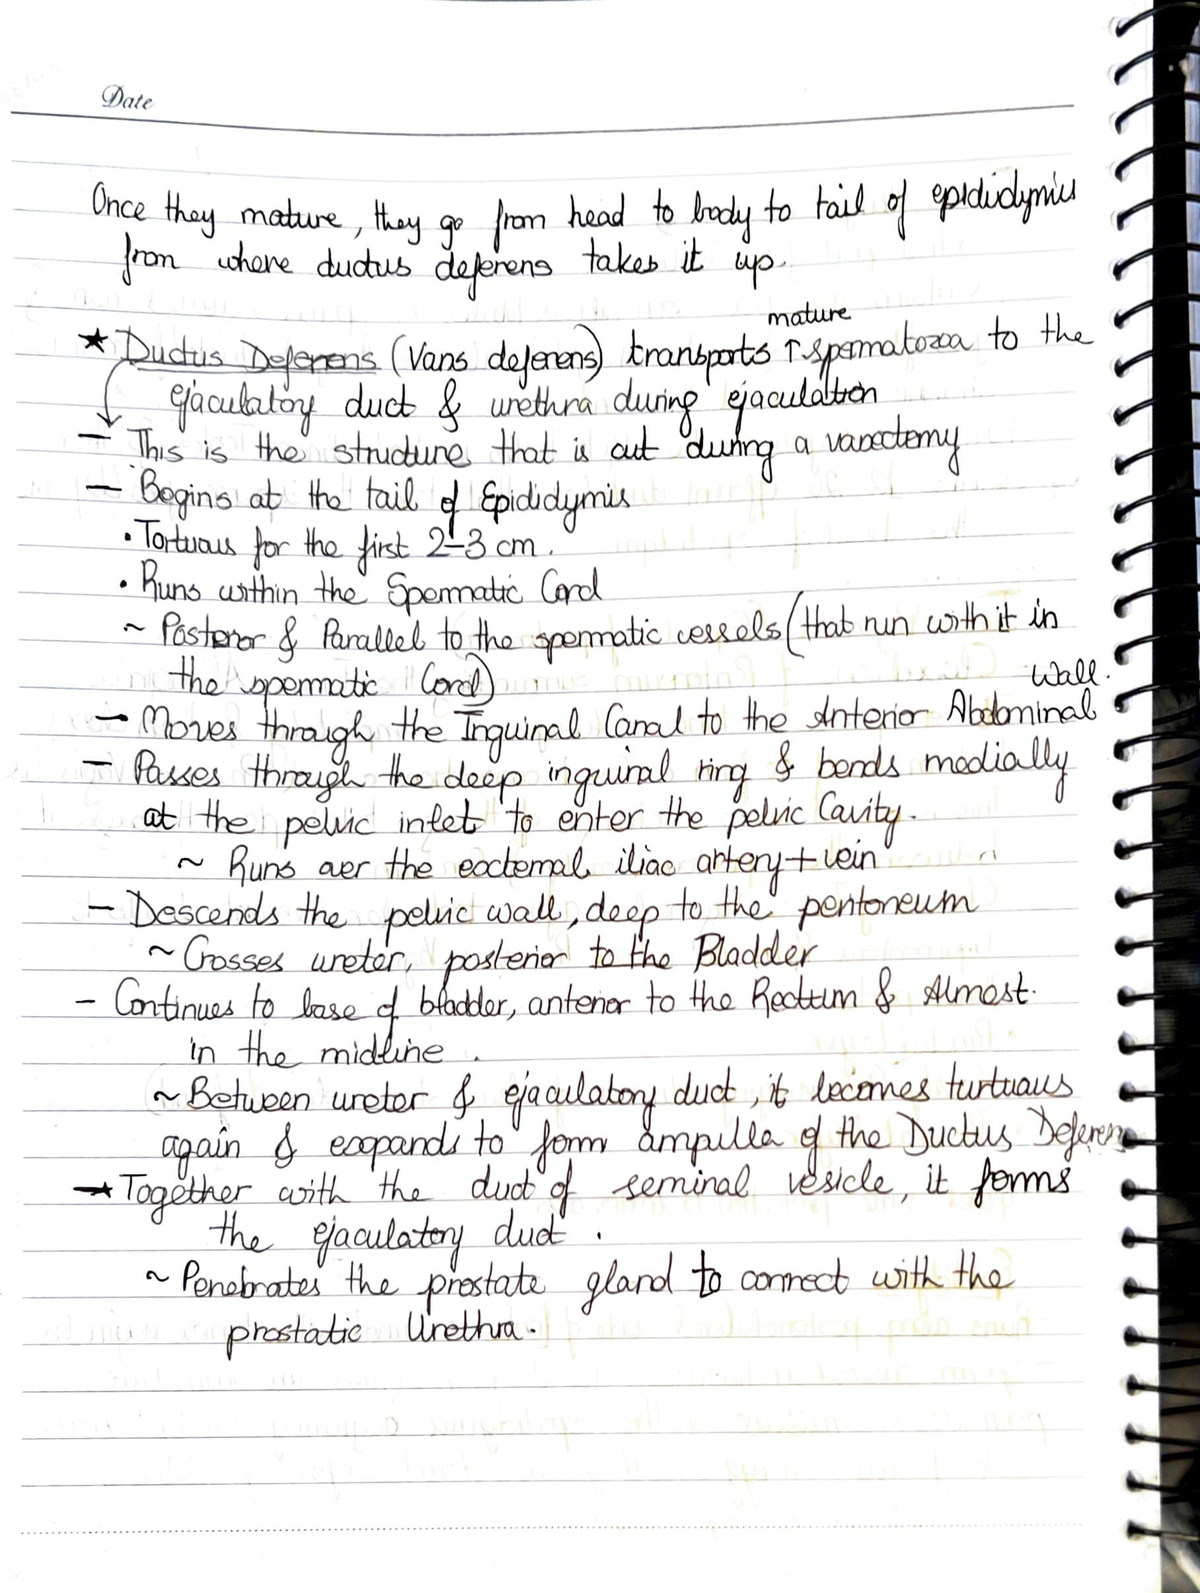 Date
Once they mature, they go from head to body to tail of epididymis
from where ductus deferens takes it up.
mature
★ Ductus Deferens (Vans deferens) transports ↑ spermatozoa to the
ejaculatory duct & urethra during ejaculation
— This is the structure that is cut during a vasectomy
— Begins at the tail of Epididymis
• Tortuous for the first 2-3 cm.
• Runs within the Spermatic Cord
~ Posterior & Parallel to the spermatic vessels (that run with it in
the spermatic Cord)
Wall.
— Moves through the Inguinal Canal to the Anterior Abdominal
— Passes through the deep inguinal ring & bends medially
at the pelvic inlet to enter the pelvic Cavity.
~ Runs over the external iliac artery + vein
— Descends the pelvic wall, deep to the peritoneum
~ Crosses ureter, posterior to the Bladder
— Continues to base of bladder, anterior to the Rectum & Almost
in the midline.
~ Between ureter & ejaculatory duct, it becomes turtuous
again & expands to form ampulla of the Ductus Deferens
— Together with the duct of seminal vesicle, it forms
the ejaculatory duct.
~ Penebrates the prostate gland to connect with the
prostatic Urethra.